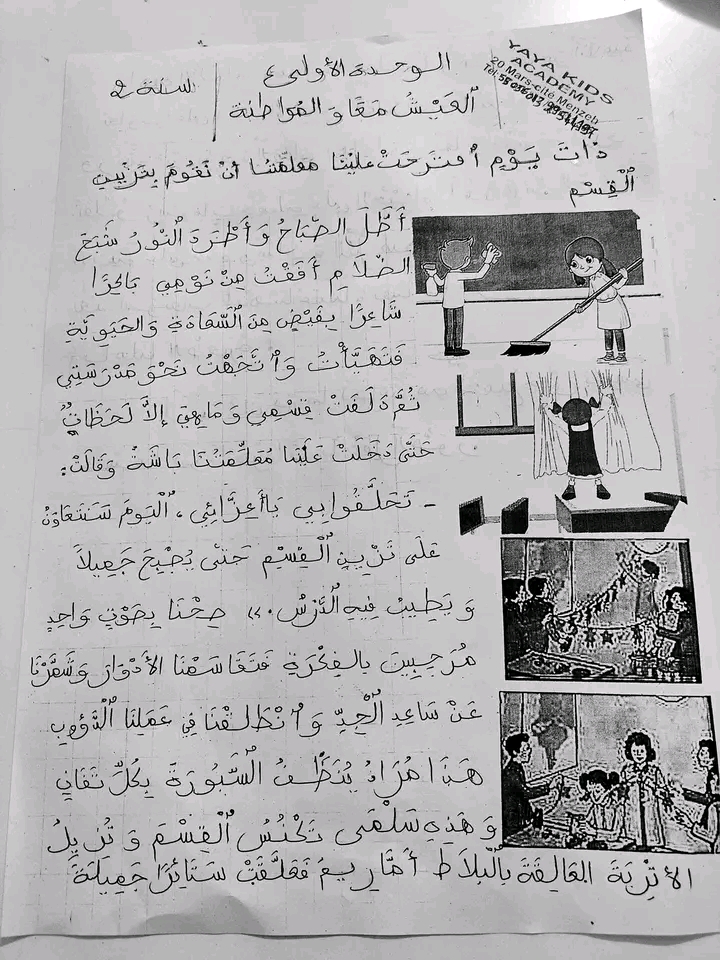 الوحدة الأولى
سنة 2
العَيْشُ مَعًا وَ المُوَاطنَة
YAYA KIDS
ACADEMY
20 Mars-cité Menzeh
ذَاتَ يَوْمٍ اُقتَرَحَتْ عَلَيْنَا مُعلّمَتنا أنْ نَقُومَ بِتَزْيِينِ
الْقِسْمِ
أَطَلَّ الصَّبَاحُ وَ أَطْرَدَ النُّورُ شَبَحَ
الظّلَامِ أَفَقْتُ مِنْ نَوْمِي بَاكِرًا
شَاعِرًا بِفَيْضٍ مِنَ السَّعَادَةِ وَالحَيَوِيَّةِ
فَتَهَيَّأْتُ وَ اتَّجَهْتُ نَحْوَ مَدْرَسَتِي
ثُمَّ دَلَفْتُ قِسْمِي وَ مَا هِيَ إِلاَّ لَحَظَاتٌ
حَتَّى دَخَلَتْ عَلَيْنَا مُعَلِّمَتُنَا بَاشَّةً وَقَالَتْ:
- تَحَلَّقُوا بِي يَا أَعِزَّائِي، اَلْيَوْمَ سَنَتَعَاوَنُ
عَلَى تَزْيِينِ الْقِسْمِ حَتَّى يُصْبِحَ جَمِيلاً
وَ يَطِيبُ فِيهِ الدَّرْسُ.>> صِحْنَا بِصَوْتٍ وَاحِدٍ
مُرَحِّبِينَ بالفِكْرَةِ فَتَقَاسَمْنَا الأَدْوَارَ وَشَمَّرْنَا
عَنْ سَاعِدِ الْجِدِّ وَ انْطَلَقْنَا فِي عَمَلِنَا الدَّؤُوبِ
هَذَا مُرَادُ يُنَظِّفُ السَّبُورَةَ بِكُلِّ تَفَانِي
وَ هَذِهِ سَلْمَى تَكْنُسُ الْقِسْمَ وَ تُزِيلُ
الأتْرِبَةَ العَالِقَةَ بِالْبلَاطِ أَمَّا رِيمَ فَعَلَّقَتْ سَتَائِرًا جَمِيلَةً